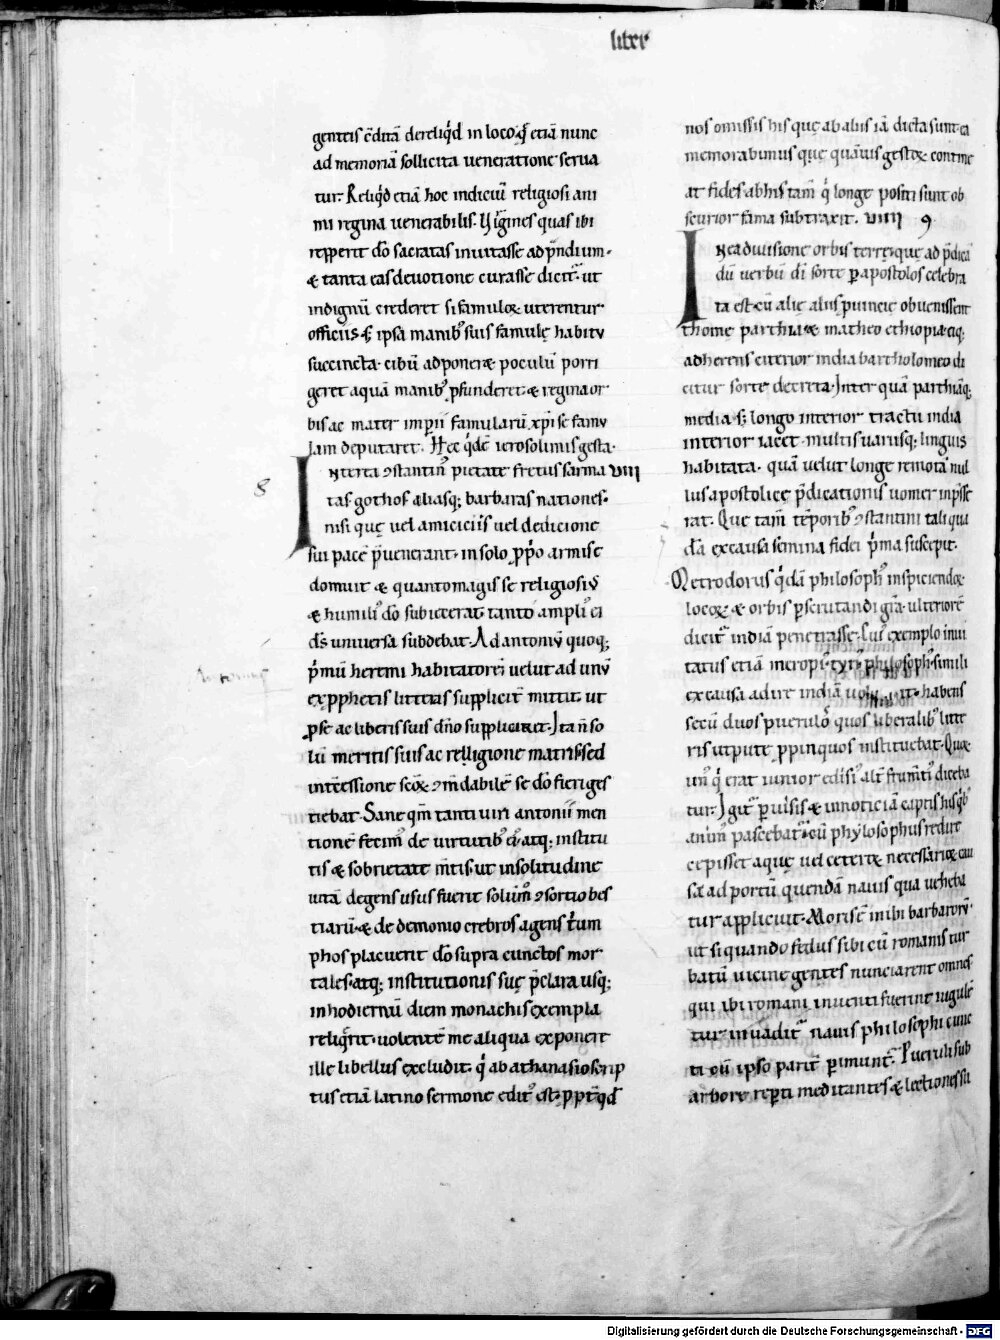 lib x
gentis c̄ditā dereliq̇d in loco. q̄ etiā nunc
ad memoriā sollicita veneratione serva
tur. Reliq̇d etiā hoc indiciū religiosi ani
mi regina venerabilis. Virgines quas ibi
repperit dō sacratas invitasse ad p̄ndium.
& tanta eas devotione curasse dicit̄. ut
indignū crederet si famuloꝝ uterentur
officiis. s; ipsa manib; suis famulę habitu
succincta. cibū adponere poculū porri
geret aquā manib; p̄funderet. & regina or
bis ac mater imp̄ii famularū xp̄i se famu
lam deputaret. Hec q̇dē ierosolimis gesta.
Interea ꝯstantin; pietate fretus sarma VIIII
tas gothos aliasq; barbaras nationes.
nisi quę vel amiciciis vel dedicione
sui pacē p̄venerant. in solo ꝓp̄o armis e
domuit & quanto magis se religiosiꝰ
& humiliꝰ dō subiecerat. tanto ampliꝰ ei
d̄s universa subdebat. Ad antoniū quoq;
p̄mū heremi habitatorē velut ad unū
ex ꝓphetis litteras supplicit̄ mittit. ut
ꝓ se ac liberis suis dn̄o supplicaret. Ita n̄ so
lū meritis suis ac relligione matris. sed
intercessione sc̄oꝝ ꝯm̄dabilē se dō fieri ges
tiebat. Sane qm̄ tanti viri antonii men
tionē fecim; de virtutib; ei; atq; institu
tis & sobrietate m̄tis. ut in solitudine
vitā degens usus fuerit solūm̄ ꝯsortio bes
tiarū. & de demonio crebros agens t̄um
phos placuerit dō supra cunctos mor
tales. atq; institutionis suę p̄clara usq;
in hodiernū diem monachis exempla
reliq̄rit. volentē me aliqua exponere
ille libellus excludit. q̇ ab athanasio scrip
tus etiā latino sermone edit; est. ꝓpt̄ q̄d
nos omissis his quę ab aliis iā dicta sunt. ea
memorabimus quę quāvis gestoꝝ contine
at fides ab his tam̄ q̇ longe positi sunt ob
scurior fama subtraxit. VIIII 9
In ea divisione orbis terrę. quę ad p̄dica
dū verbū dī sorte p̄ apostolos celebra
ta est. cū alię aliis p̄vincię obvenissent
thomę parthia. & matheo ethiopia. eiq;
adherens citerior india bartholomeo di
citur sorte decreta. Inter quā parthiāq;
media. s; longo interior tractu india
interior iacet. multis variisq; linguis
habitata. quā velut longe remotā nul
lus apostolicę p̄dicationis vomer inp̄sse
rat. Quę tam̄ tēporib; ꝯstantini tali qua
dā ex causa semina fidei p̄ma suscepit.
Metrodorus q̇dā philosoph; inspiciendoꝝ
locoꝝ & orbis p̄scrutandi gr̄a. ulteriorē
dicit̄ indiā penetrasse. Cui; exemplo invi
tatus etiā meropi; tyri; philosoph; simili
ex causa adire indiā voluit. habens
secū duos puerulos quos liberalib; litte
ris utpute ꝓpinquos instituebat. Quoꝝ
un; q̇ erat iunior edisi; alt̄ frumti; diceba
tur. Igit̄ p̄visis & in noticiā captis his q̇b;
anim; pascebat̄. cū phylosophus redire
cepisset aquę vel ceteroꝝ necessarioꝝ cau
sā ad portū quendā navis qua veheba
tur applicuit. Moris ē inibi barbarorū
ut si quando fedus sibi cū romanis tur
batū vicinę gentes nunciarent omnes
qui ibi romani inventi fuerint iugulē
tur. invadit̄ navis philosophi cunc
ti cū ipso parit̄ p̄imunt̄. Pueruli sub
arbore rep̄ti meditantes & lectiones su